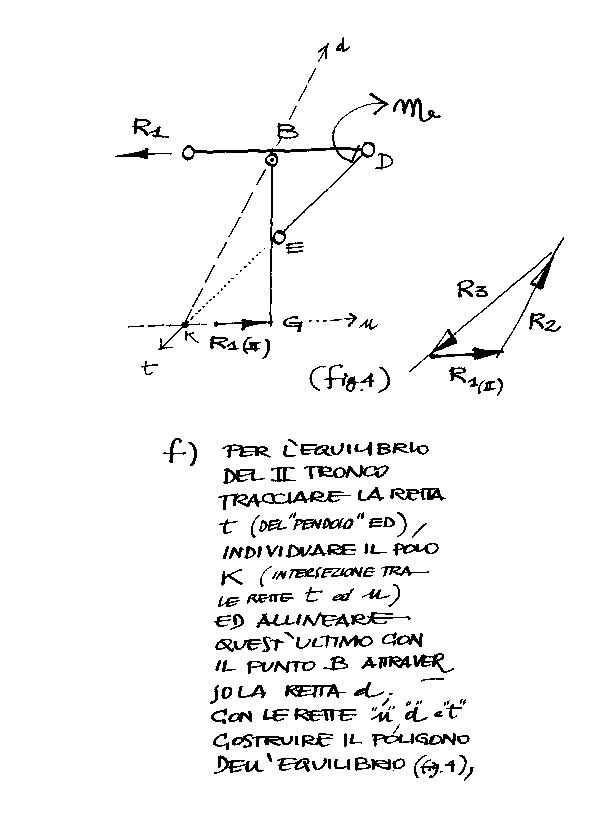 d
Me
R1
B
D
E
R3
R2
K
G
u
t
R1(II)
(fig.4)
R1(II)
f) PER L'EQUILIBRIO
DEL II TRONCO
TRACCIARE LA RETTA
t (DEL "PENDOLO" ED),
INDIVIDUARE IL POLO
K (INTERSEZIONE TRA
LE RETTE t ed u)
ED ALLINEARE
QUEST'ULTIMO CON
IL PUNTO B ATTRAVER
SO LA RETTA d,
CON LE RETTE "u" "d" e "t"
COSTRUIRE IL POLIGONO
DELL'EQUILIBRIO (fig.4),